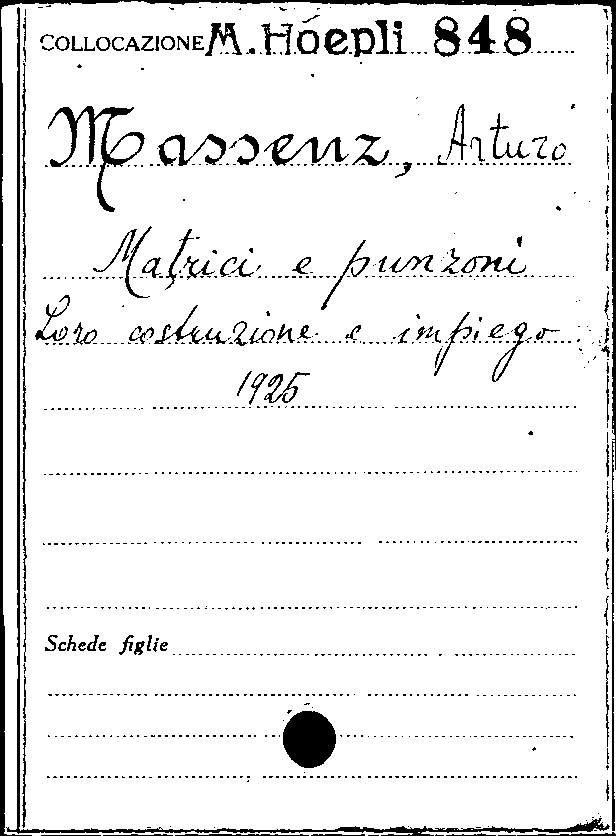 COLLOCAZIONE M. Hoepli 848
Massenz, Arturo
Matrici e punzoni
Loro costruzione e impiego
1925
Schede figlie